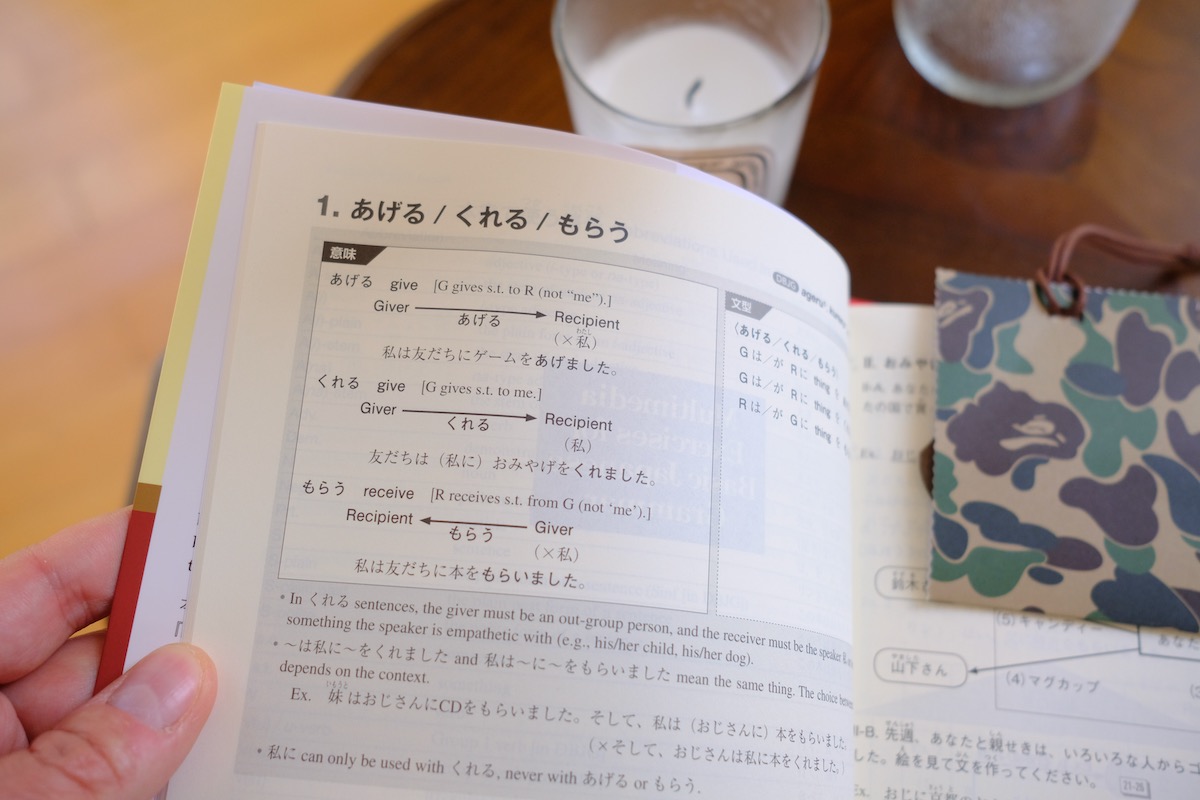 1. あげる / くれる / もらう
意味
あげる give [G gives s.t. to R (not “me”).]
Giver → Recipient
あげる
(×私)
わたし
私は友だちにゲームをあげました。
くれる give [G gives s.t. to me.]
Giver → Recipient
くれる
(私)
友だちは（私に）おみやげをくれました。
もらう receive [R receives s.t. from G (not ‘me’).]
Recipient ← Giver
もらう
(×私)
私は友だちに本をもらいました。
文型
〈あげる／くれる／もらう
Gは／が Rに thing を
Gは／が Rに thing を
Rは／が Gに thing を
* In くれる sentences, the giver must be an out-group person, and the receiver must be the speaker
something the speaker is empathetic with (e.g., his/her child, his/her dog).
* 〜は私に〜をくれました and 私は〜に〜をもらいました mean the same thing. The choice
depends on the context.
いもうと
Ex. 妹はおじさんにCDをもらいました。そして、私は（おじさんに）本をもらいました。
(×そして、おじさんは私に本をくれました。)
* 私に can only be used with くれる, never with あげる or もらう.
(5) キャンディー
あなた
やました
山下さん
(4) マグカップ
II-B. 先週、あなたと親せきは、いろいろな人から
した。絵を見て文を作ってください。
21-25
Ex. おじに